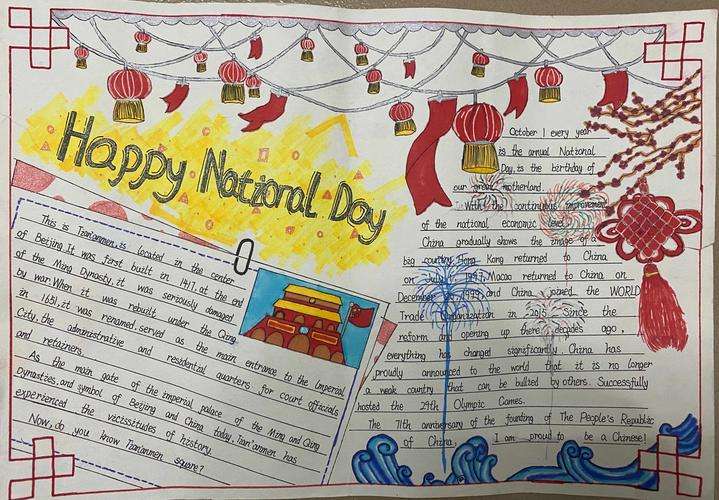 Happy National Day
This is Tian'anmen, is located in the center
of Beijing. It was first built in 1417, at the end
of the Ming Dynasty, it was seriously damaged
by war. When it was rebuilt under the Qing
in 1651, it was renamed, served as the main entrance to the Imperial
City, the administrative and residential quarters for court officials
and retainers.
As the main gate of the imperial palace of the Ming and Qing
Dynasties, and symbol of Beijing and China today, Tian'anmen has
experienced the vicissitudes of history.
Now, do you know Tian'anmen square?
October 1 every year
is the annual National
Day, is the birthday of
our great motherland.
With the continuous improvement
of the national economic level,
China gradually shows the image of a
big country. Hong Kong returned to China
on July 1, 1997, Macao returned to China on
December 1999, and China joined the WORLD
Trade Organization in 2015. Since the
reform and opening up three decades ago,
everything has changed significantly. China has
proudly announced to the world that it is no longer
a weak country that can be bullied by others. Successfully
hosted the 29th Olympic Games.
The 71th anniversary of the founding of The People's Republic
of China, I am proud to be a Chinese!